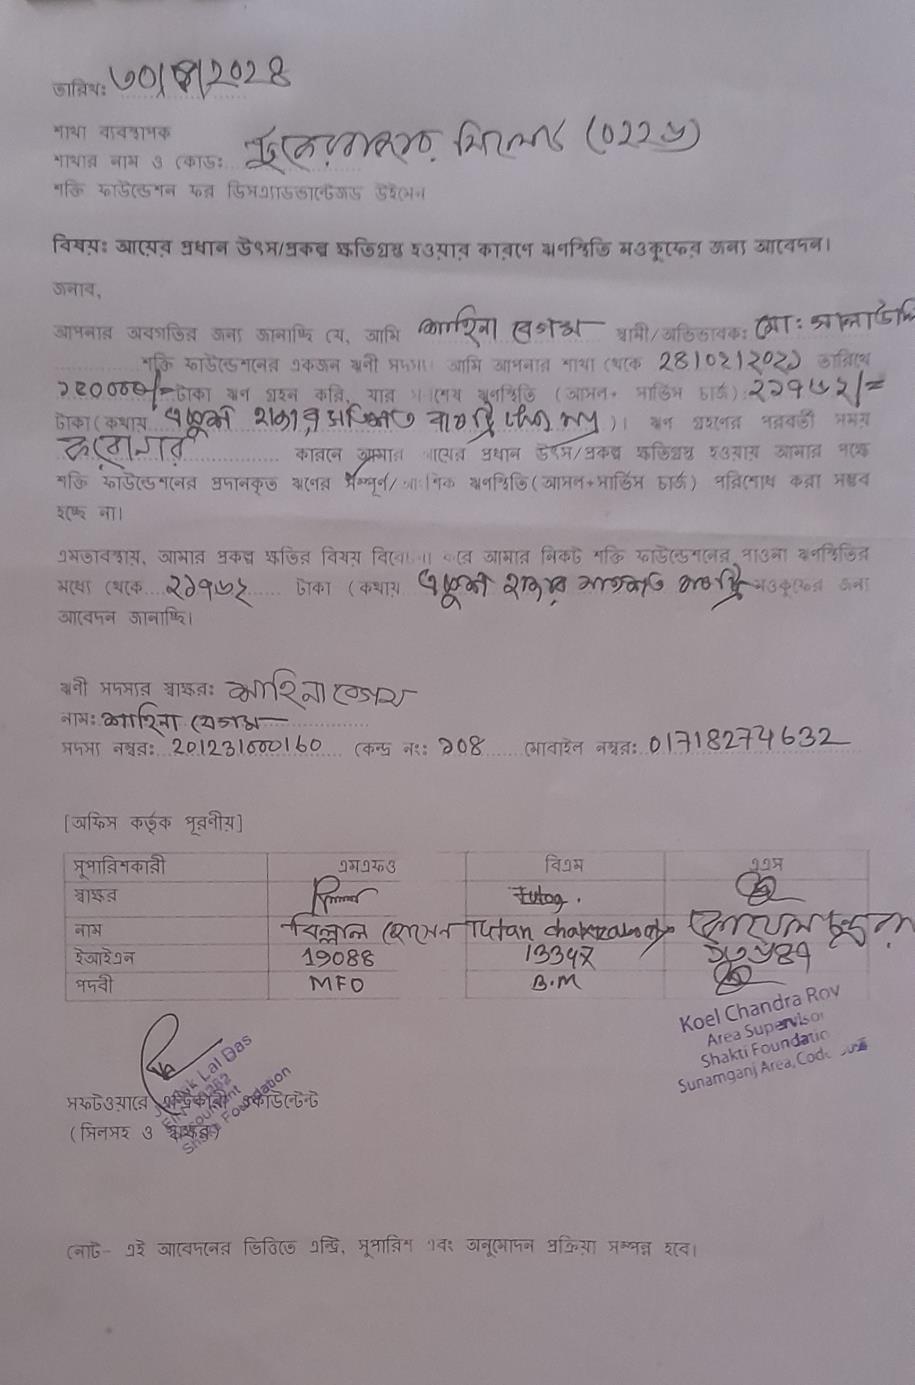 তারিখ: ৩০/৪/2024
শাখা ব্যবস্থাপক
শাখার নাম ও কোড: সিলেট (০২২৬)
শক্তি ফাউন্ডেশন ফর ডিসএ্যাডভান্টেজড উইমেন
বিষয়: আয়ের প্রধান উৎস/প্রকল্প ক্ষতিগ্রস্থ হওয়ার কারণে ঋণস্থিতি মওকুফের জন্য আবেদন।
জনাব,
আপনার অবগতির জন্য জানাচ্ছি যে, আমি শাহিনা বেগম স্বামী/অভিভাবক: মো: সালাউদ্দি
শক্তি ফাউন্ডেশনের একজন ঋনী সদস্য। আমি আপনার শাখা থেকে 28/02/২০২১ তারিখে
টাকা ঋণ গ্রহন করি, যার শেষ ঋণস্থিতি (আসল+ সার্ভিস চার্জ) ২১৭৬২/=
টাকা (কথায় একুশ হাজার সাতশত বাষট্টি টাকা মাত্র)। ঋণ গ্রহণের পরবর্তী সময়
করোনার কারনে আমার আয়ের প্রধান উৎস/প্রকল্প ক্ষতিগ্রস্থ হওয়ায় আমার পক্ষে
শক্তি ফাউন্ডেশনের প্রদানকৃত ঋণের সম্পূর্ণ/আংশিক ঋণস্থিতি (আসল+সার্ভিস চার্জ) পরিশোধ করা সম্ভব
হচ্ছে না।
এমতাবস্থায়, আমার প্রকল্প ক্ষতির বিষয় বিবেচনা করে আমার নিকট শক্তি ফাউন্ডেশনের পাওনা ঋণস্থিতির
মধ্যে থেকে ২১৭৬২ টাকা (কথায় একুশ হাজার সাতশত বাষট্টি মওকুফের জন্য
আবেদন জানাচ্ছি।
ঋনী সদস্যর স্বাক্ষর: শাহিনা বেগম
নাম: শাহিনা বেগম
সদস্য নম্বর: 201231000160 কেন্দ্র নং: ১০৪ মোবাইল নম্বর: 01718274632
[অফিস কর্তৃক পূরণীয়]
সুপারিশকারী এমএফও বিএম এএস
স্বাক্ষর
নাম বিল্লাল হোসেন Tutan chakrabo
ইআইএন 19088
পদবী MFO B.M
Koel Chandra Roy
Area Supervisor
Shakti Foundation
Sunamganj Area, Code
Lal Das
Shakti Foundation
সফটওয়ারে এন্ট্রিকারী একাউন্টেন্ট
(সিলসহ ও স্বাক্ষর)
নোট- এই আবেদনের ভিত্তিতে এন্ট্রি, সুপারিশ এবং অনুমোদন প্রক্রিয়া সম্পন্ন হবে।